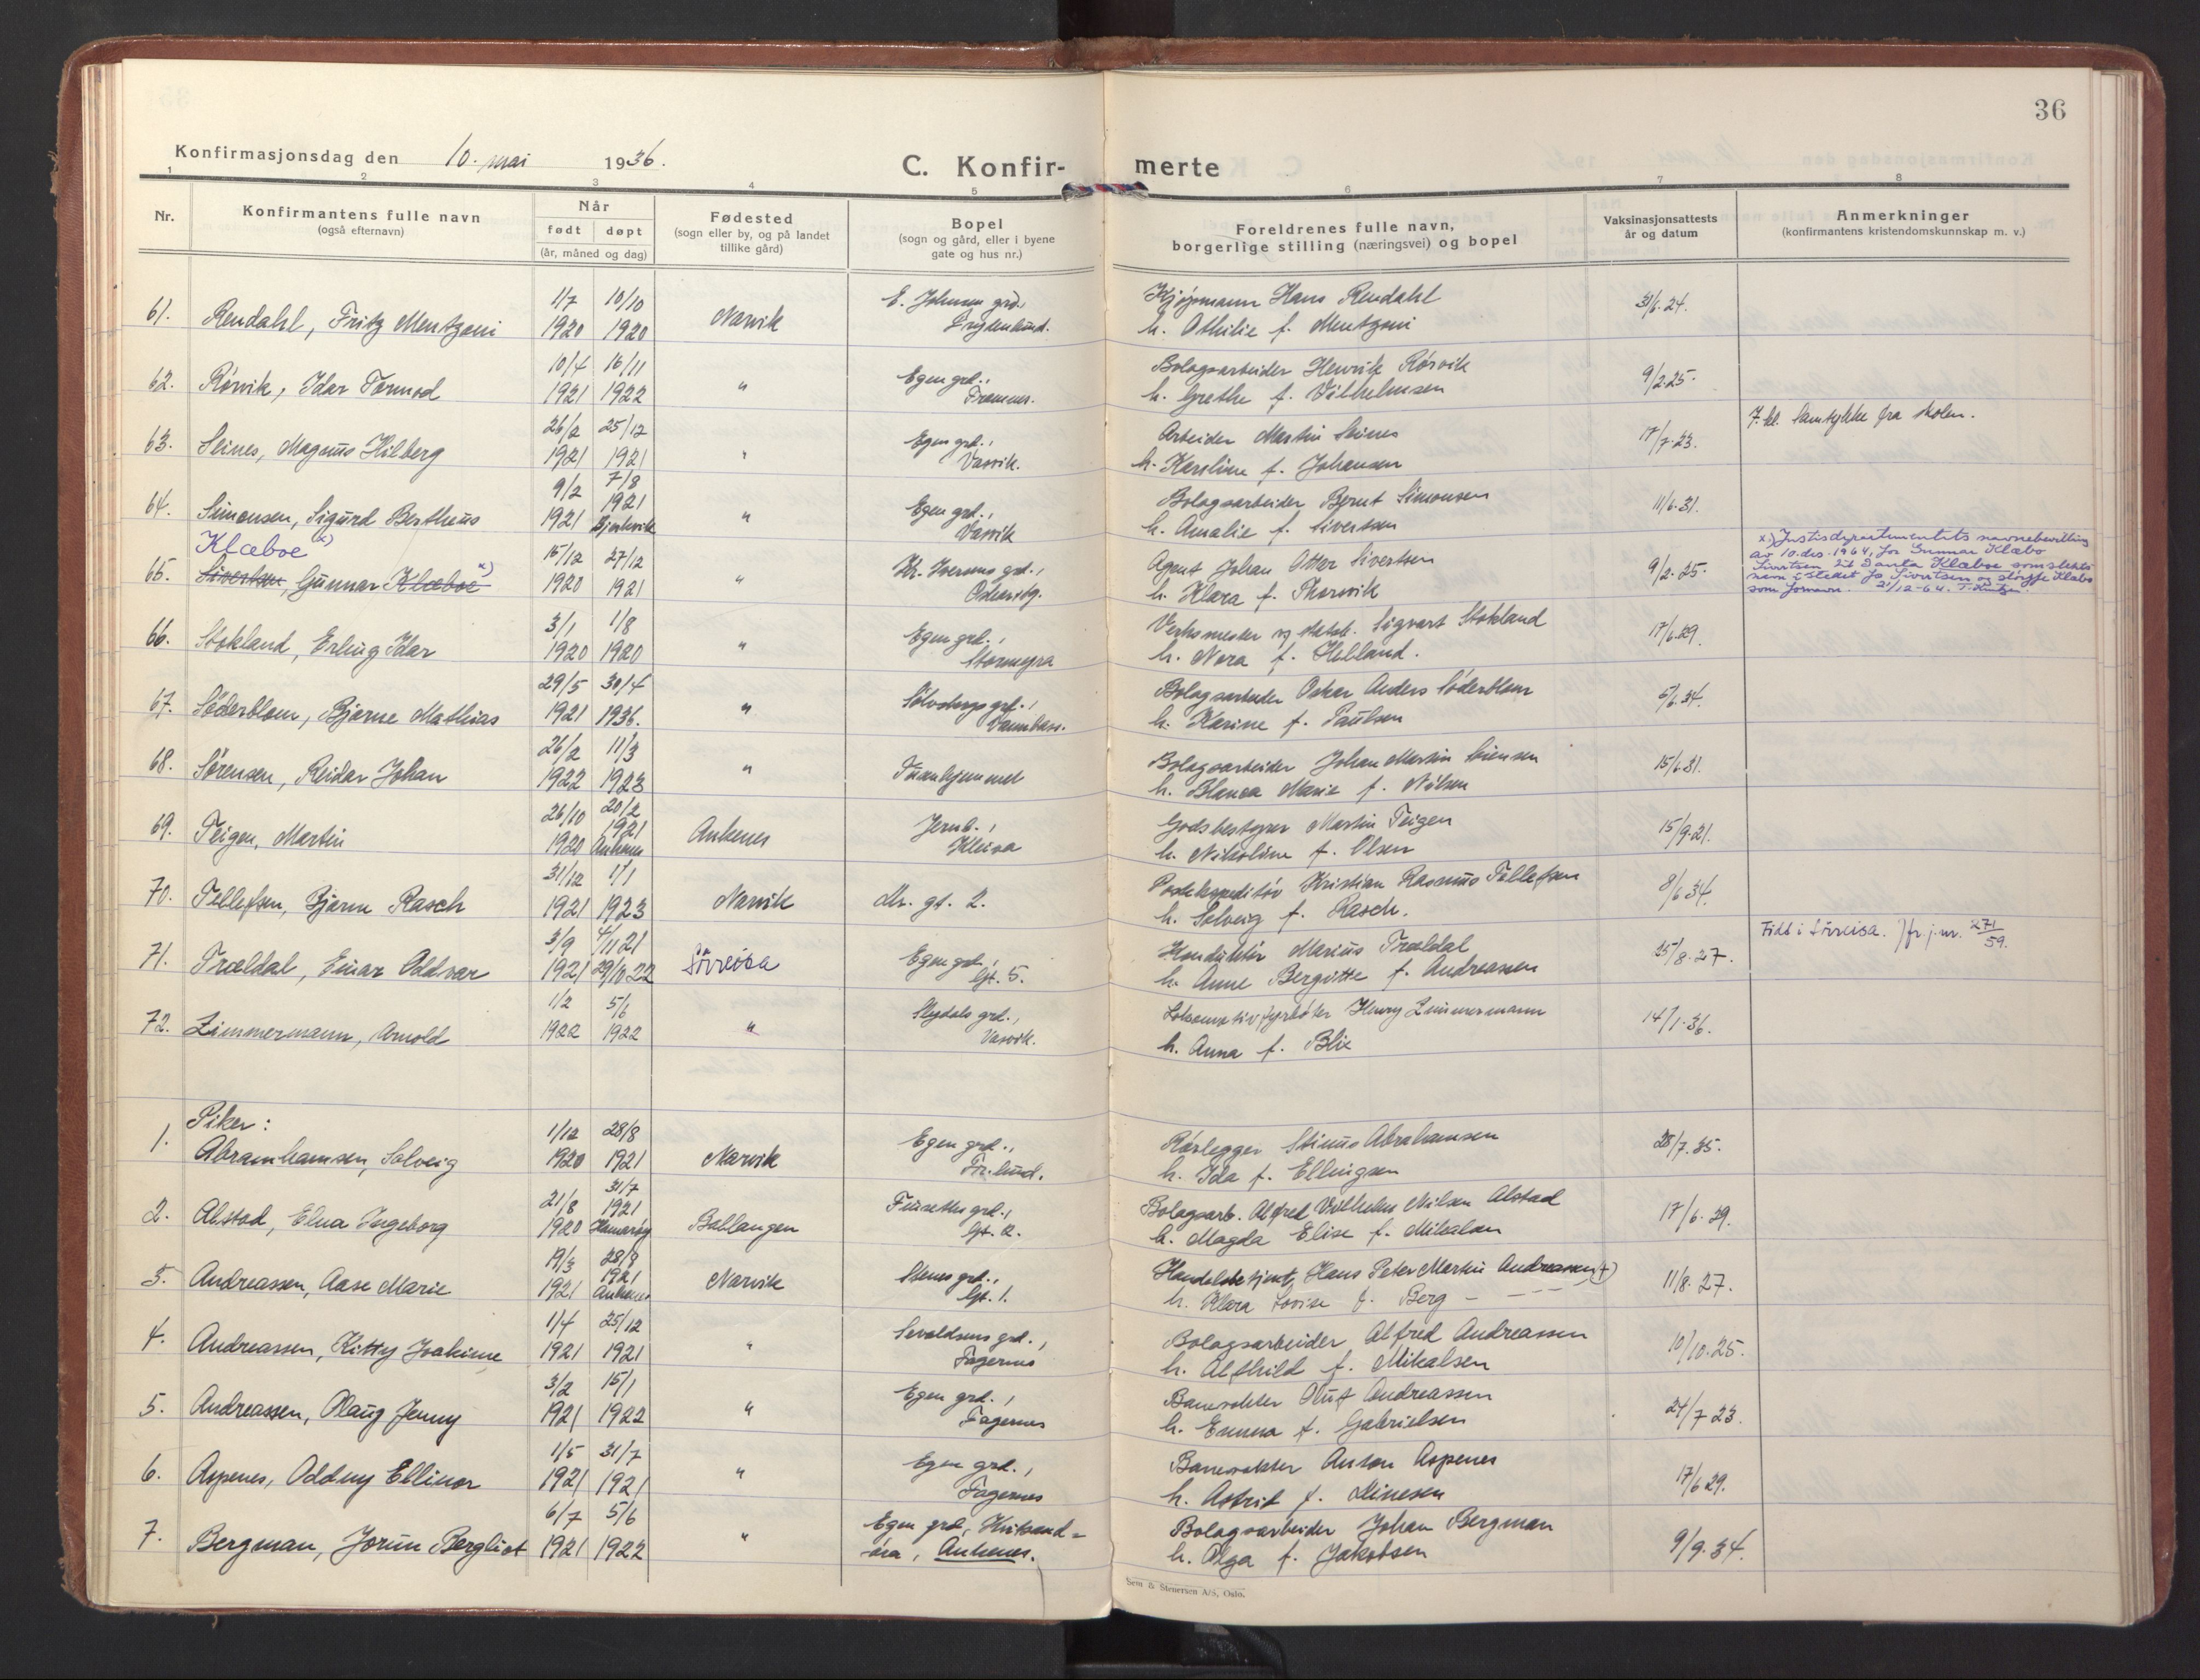 36
Konfirmasjonsdag den 10. mai 1936.
C. Konfir- merte
1 2 3 4 5 6 7 8
Nr.
Konfirmantens fulle navn
(også efternavn)
Når
født døpt
(år, måned og dag)
Fødested
(sogn eller by, og på landet
tillike gård)
Bopel
(sogn og gård, eller i byene
gate og hus nr.)
Foreldrenes fulle navn,
borgerlige stilling (næringsvei) og bopel
Vaksinasjonsattests
år og datum
Anmerkninger
(konfirmantens kristendomskunnskap m. v.)
1/7 10/10 E. Johnsen grd., Kjøpmann Hans Rendahl
61. Rendahl, Fritz Mentzoni 1920 1920 Narvik Frydenlund. h. Othilie f. Mentzoni 31/6.24.
10/4 16/11 Egen grd., Bolagsarbeider Henrik Rørvik
62. Rørvik, Idar Tormod 1921 1922 " h. Grethe f. Vilhelmsen 9/2.25.
26/2 25/12 Egen grd., Arbeider Martin Seines 7. kl. Samtykke fra skolen.
63. Seines, Magnus Hilberg 1921 1921 " Vassvik. h. Karoline f. Johansen 17/7.23.
9/2 7/8 1921 Egen grd., Bolagsarbeider Bernt Simonsen
64. Simonsen, Sigurd Bertheus 1921 Bjerkvik " Vassvik h. Amalie f. Sivertsen 11/6.31.
Klæboe x) 15/12 27/12 Kr. Iversens grd., Agent Johan Otter Sivertsen
65. Sivertsen, Gunnar Klæboe x) 1920 1921 " h. Klara f. Thorsvik 9/2.25.
x) Justisdepartementets navnebevilling
av 10. des. 1964, for Gunnar Klæbo
Sivertsen til å anta Klæboe som slekts
navn i stedet for Sivertsen og sløyfe Klæbo
som fornavn. 21/12-64.
3/1 1/8 Egen grd., Verksmester og statsb. Sigvart Stokland
66. Stokland, Erling Idar 1920 1920 " Stormyra h. Nora f. Helland. 17/6.29.
29/5 30/4 Bolagsarbeider Oskar Anders Söderblom
67. Söderblom, Bjarne Mathias 1921 1936. " Vannbass. h. Karine f. Paulsen 5/6.34.
26/2 11/3 Bolagsarbeider Johan Martin Sörensen
68. Sörensen, Reidar Johan 1922 1923 " h. Blanca Marie f. Nilsen 15/6.31.
26/10 20/2 1921 Jernb., Godsbestyrer Martin Teigen
69. Teigen, Martin 1920 Ankenes Ankenes Kleiva h. Nikoline f. Olsen 15/9.21.
31/12 1/1 Postekspeditør Kristian Rasmus Tellefsen
70. Tellefsen, Bjarne Rasch 1921 1923 Narvik Dr. gt. 2. h. Solveig f. Rasch. 8/6 34.
3/9 4/11 21 Egen grd., Konduktør Marius Trældal Født i Sørreisa. Jfr. j.nr. 271/59.
71. Trældal, Einar Oddvar 1921 29/10 22 Sørreisa Gt. 5. h. Anne Bergitte f. Andreassen 25/8.27.
1/2 5/6 Slydals grd., Lokomotivfyrbøter Henry Zimmermann
72. Zimmermann, Arnold 1922 1922 " Vassvik. h. Anna f. Blix 14/1.36.
Piker:
1. 1/12 28/8 Egen grd., Rørlegger Stinus Abrahamsen
Abramhamsen, Solveig 1920 1921 Narvik Fr.lund. h. Ida f. Ellingsen 28/7.35.
21/8 31/7 1921 Finseths grd., Bolagsarb. Alfred Vilhelm Nilsen Alstad
2. Alstad, Elna Ingeborg 1920 Hamarøy Ballangen Gt. 2. h. Magda Elise f. Mikalsen 17/6.29.
19/3 28/8 1921 Stenes grd., Handelsbetjent, Hans Peter Martin Andreassen +)
3. Andreassen, Aase Marie 1921 Ankenes Narvik Gt. 1. h. Klara Lovise f. Berg 11/8.27.
1/4 25/12 Sevaldsens grd., Bolagsarbeider Alfred Andreassen
4. Andreassen, Kitty Joakime 1921 1921 " Fagernes h. Alfhild f. Mikalsen 10/10.25.
3/2 15/1 Egen grd., Banevokter Oluf Andreassen
5. Andreassen, Olaug Jenny 1921 1922 " Fagernes h. Emma f. Gabrielsen 24/7 23.
1/5 31/7 Egen grd., Banevokter Anton Aspenes
6. Aspenes, Oddny Ellinor 1921 1921 " Fagernes h. Astrid f. 17/6 29.
6/7 5/6 Egen grd, Bolagsarbeider Johan Bergman
7. Bergman, Jorun Bergliot 1921 1922 " Ankenes. h. Olga f. Jakobsen 9/9.34.
Sem & Stenersen A/S, Oslo.